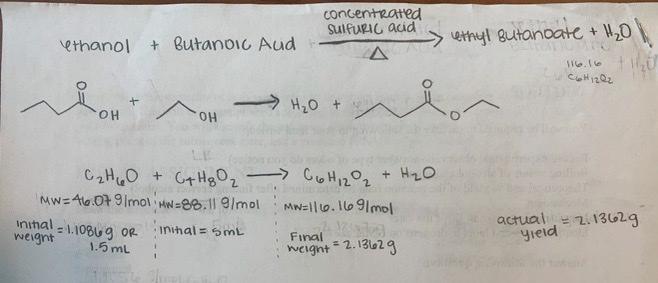 concentrated
sulfuric acid
ethanol + Butanoic Acid ⟶ ethyl Butanoate + H₂O
Δ
116.16
C₆H₁₂O₂
O O
OH + OH ⟶ H₂O + O
C₂H₆O + C₄H₈O₂ ⟶ C₆H₁₂O₂ + H₂O
MW=46.07 g/mol MW=88.11 g/mol MW=116.16 g/mol
initial weight = 1.1086 g OR 1.5 mL
initial = 5mL
Final weight = 2.1362 g
actual yield = 2.1362 g